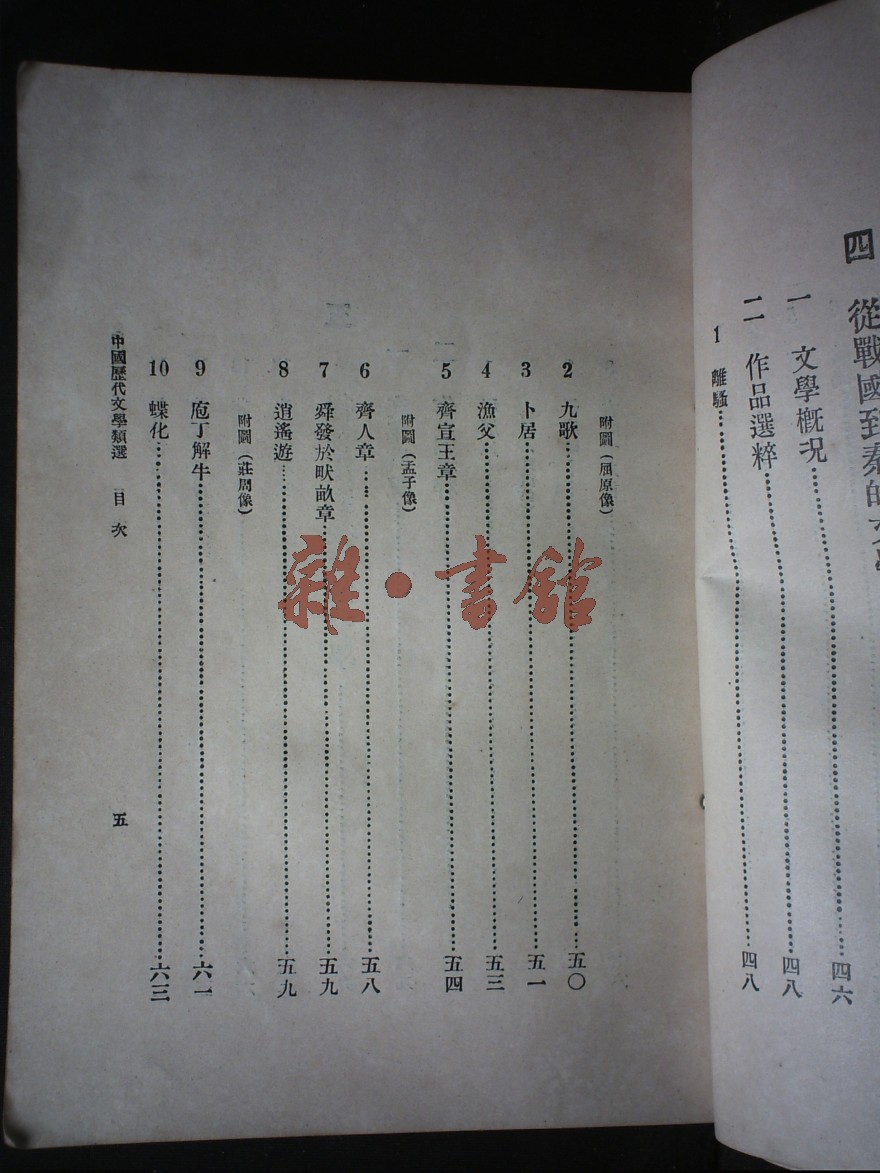 四 從戰國致秦的文學
一 文學概況……四六
二 作品選粹……四八
1 離騷……四八
附圖(屈原像)
2 九歌……五〇
3 卜居……五一
4 漁父……五三
5 齊宣王章……五四
附圖(孟子像)
6 齊人章……五八
7 舜發於畎畝章……五九
8 逍遙遊……五九
附圖(莊周像)
9 庖丁解牛……六一
10 蝶化……六三
中國歷代文學類選 目次 五
雜·書館